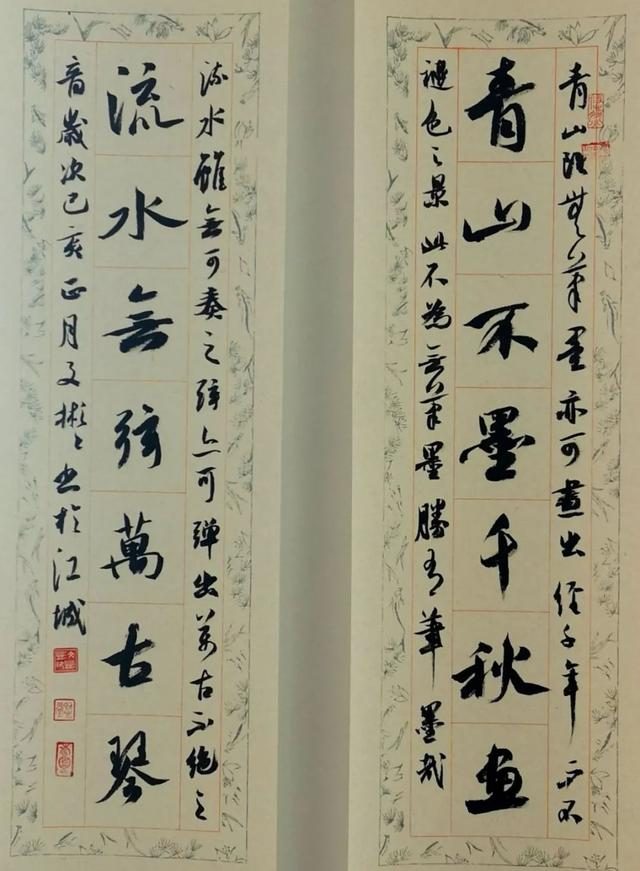 青山雖無筆墨亦可畫出經千年而不
青山不墨千秋畫
褪色之景此不為無筆墨勝有筆墨哉
流水雖無可奏之弦亦可彈出萬古不絕之
流水無弦萬古琴
音歲次己亥正月文彬書於江城